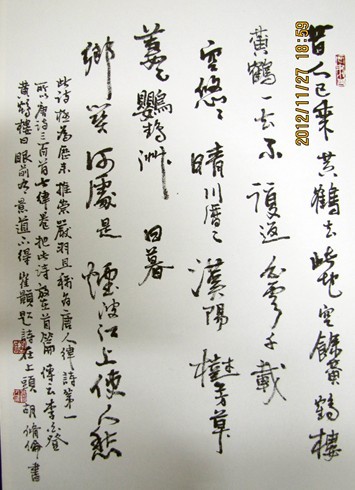 昔人已乘黃鶴去此地空餘黃鶴樓
黃鶴一去不復返白雲千載
空悠〻晴川歷〻漢陽樹芳草
萋〻鸚鵡洲日暮
鄉関何處是煙波江上使人愁
此詩極為歷來推崇嚴羽且稱為唐人律詩第一
唐诗三百首七律卷把此诗放在首篇傳云李白登
黃鶴樓曰眼前有景道不得崔顥題詩在上頭 胡脩倫書
2012/11/27 18:59